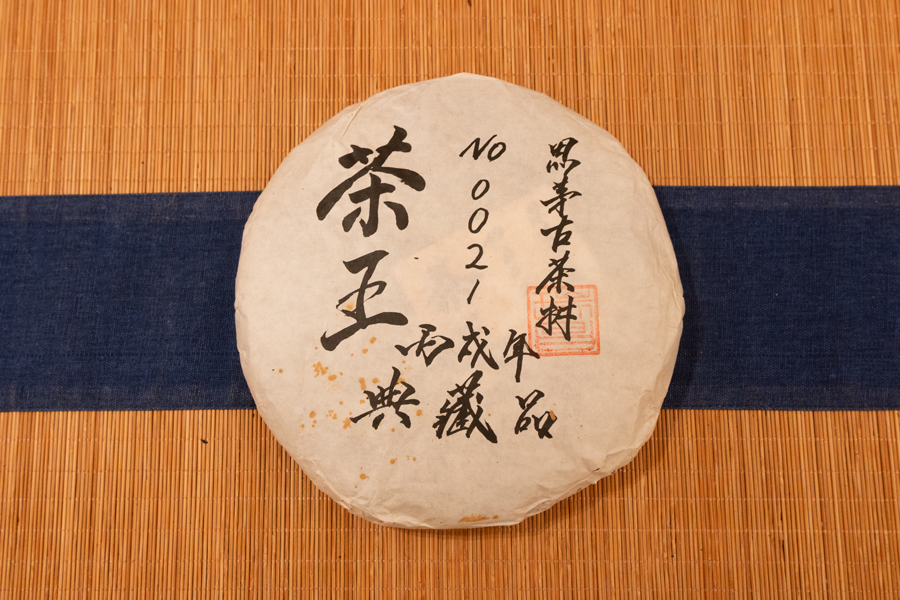 思茅古茶树
No 0021
茶王
丙戌年
典藏品